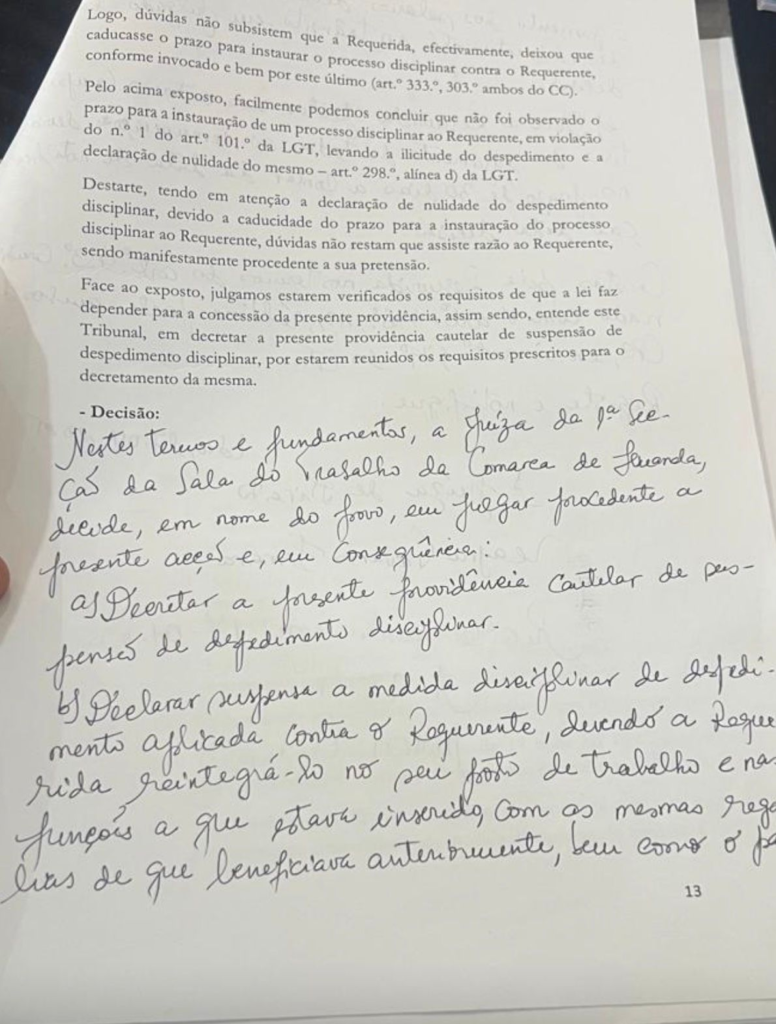 Logo, dúvidas não subsistem que a Requerida, efectivamente, deixou que
caducasse o prazo para instaurar o processo disciplinar contra o Requerente,
conforme invocado e bem por este último (art.º 333.º, 303.º ambos do CC).
Pelo acima exposto, facilmente podemos concluir que não foi observado o
prazo para a instauração de um processo disciplinar ao Requerente, em violação
do n.º 1 do art.º 101.º da LGT, levando a ilicitude do despedimento e a
declaração de nulidade do mesmo – art.º 298.º, alínea d) da LGT.
Destarte, tendo em atenção a declaração de nulidade do despedimento
disciplinar, devido a caducidade do prazo para a instauração do processo
disciplinar ao Requerente, dúvidas não restam que assiste razão ao Requerente,
sendo manifestamente procedente a sua pretensão.
Face ao exposto, julgamos estarem verificados os requisitos de que a lei faz
depender para a concessão da presente providência, assim sendo, entende este
Tribunal, em decretar a presente providência cautelar de suspensão de
despedimento disciplinar, por estarem reunidos os requisitos prescritos para o
decretamento da mesma.
- Decisão:
Nestes termos e fundamentos, a Juíza da 1ª Sec-
ção da Sala do Trabalho da Comarca de Luanda,
decide, em nome do povo, em julgar procedente a
presente acção e, em Consequência:
a) Decretar a presente providência Cautelar de sus-
pensão de despedimento disciplinar.
b) Declarar suspensa a medida disciplinar de despedi-
mento aplicada contra o Requerente, devendo a Reque
rida reintegrá-lo no seu posto de trabalho e na
funções a que estava inserido, com as mesmas rega
lias de que beneficiava anteriormente, bem como o pa
13